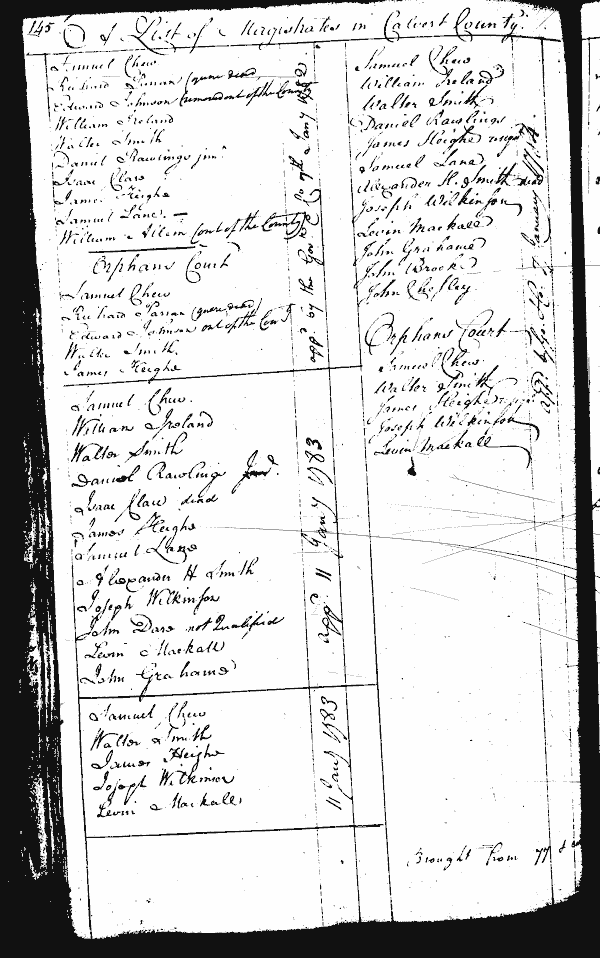 145
A List of Magistrates in Calvert County.
Samuel Chew
Richard Parran (quere dead)
Edward Johnson (removed out of the County
William Ireland
Walter Smith
Daniel Rawlings junr
Isaac Clare
James Heighe
Samuel Lane. —
William Allein (out of the County)
Orphans Court
Samuel Chew
Richard Parran (quere dead)
Edward Johnson out of the County
Walter Smith.
James Heighe
appd by the Gov &
Samuel Chew.
William Ireland
Walter Smith
Daniel Rawlings Junr.
Isaac Clare dead
James Heighe
Samuel Lane
Alexander H Smith
Joseph Wilkinson
John Dare not Qualified
Levin Mackall
John Grahame
appd. 11 Jany 1783
Samuel Chew
Walter Smith
James Heighe
Joseph Wilkinson
Levin Mackall
11 Jany 1783
Samuel Chew
William Ireland
Walter Smith
Daniel Rawlings
James Heighe
Samuel Lane
Alexander H. Smith dead
Joseph Wilkinson
Levin Mackall
John Grahame
John Brooke
John Chesley
Orphans Court
Samuel Chew
Walter Smith
James Heighe
Joseph Wilkinson
Levin Mackall
January 1784
Brought from 77